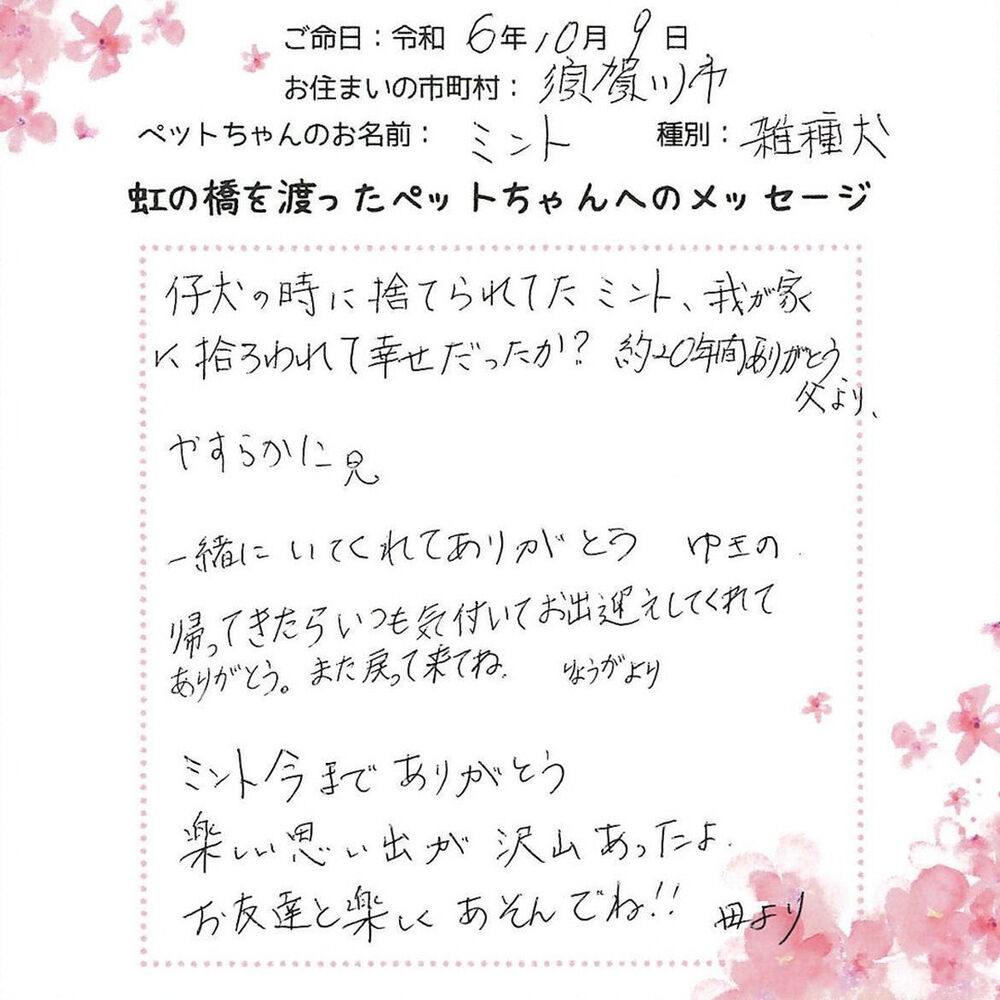 ご命日：令和 6年10月9日
お住まいの市町村： 須賀川市
ペットちゃんのお名前： ミント 種別： 雑種犬
虹の橋を渡ったペットちゃんへのメッセージ
仔犬の時に捨てられてたミント、我が家
に拾ろわれて幸せだったか？ 約20年間ありがとう
父より、
やすらかに 兄
一緒に いてくれてありがとう ゆきの
帰ってきたらいつも気付いてお出迎えしてくれて
ありがとう。また戻って来てね。 りょうがより
ミント今まで ありがとう
楽しい思い出が 沢山あったよ.
お友達と楽しく あそんでね!! 母より